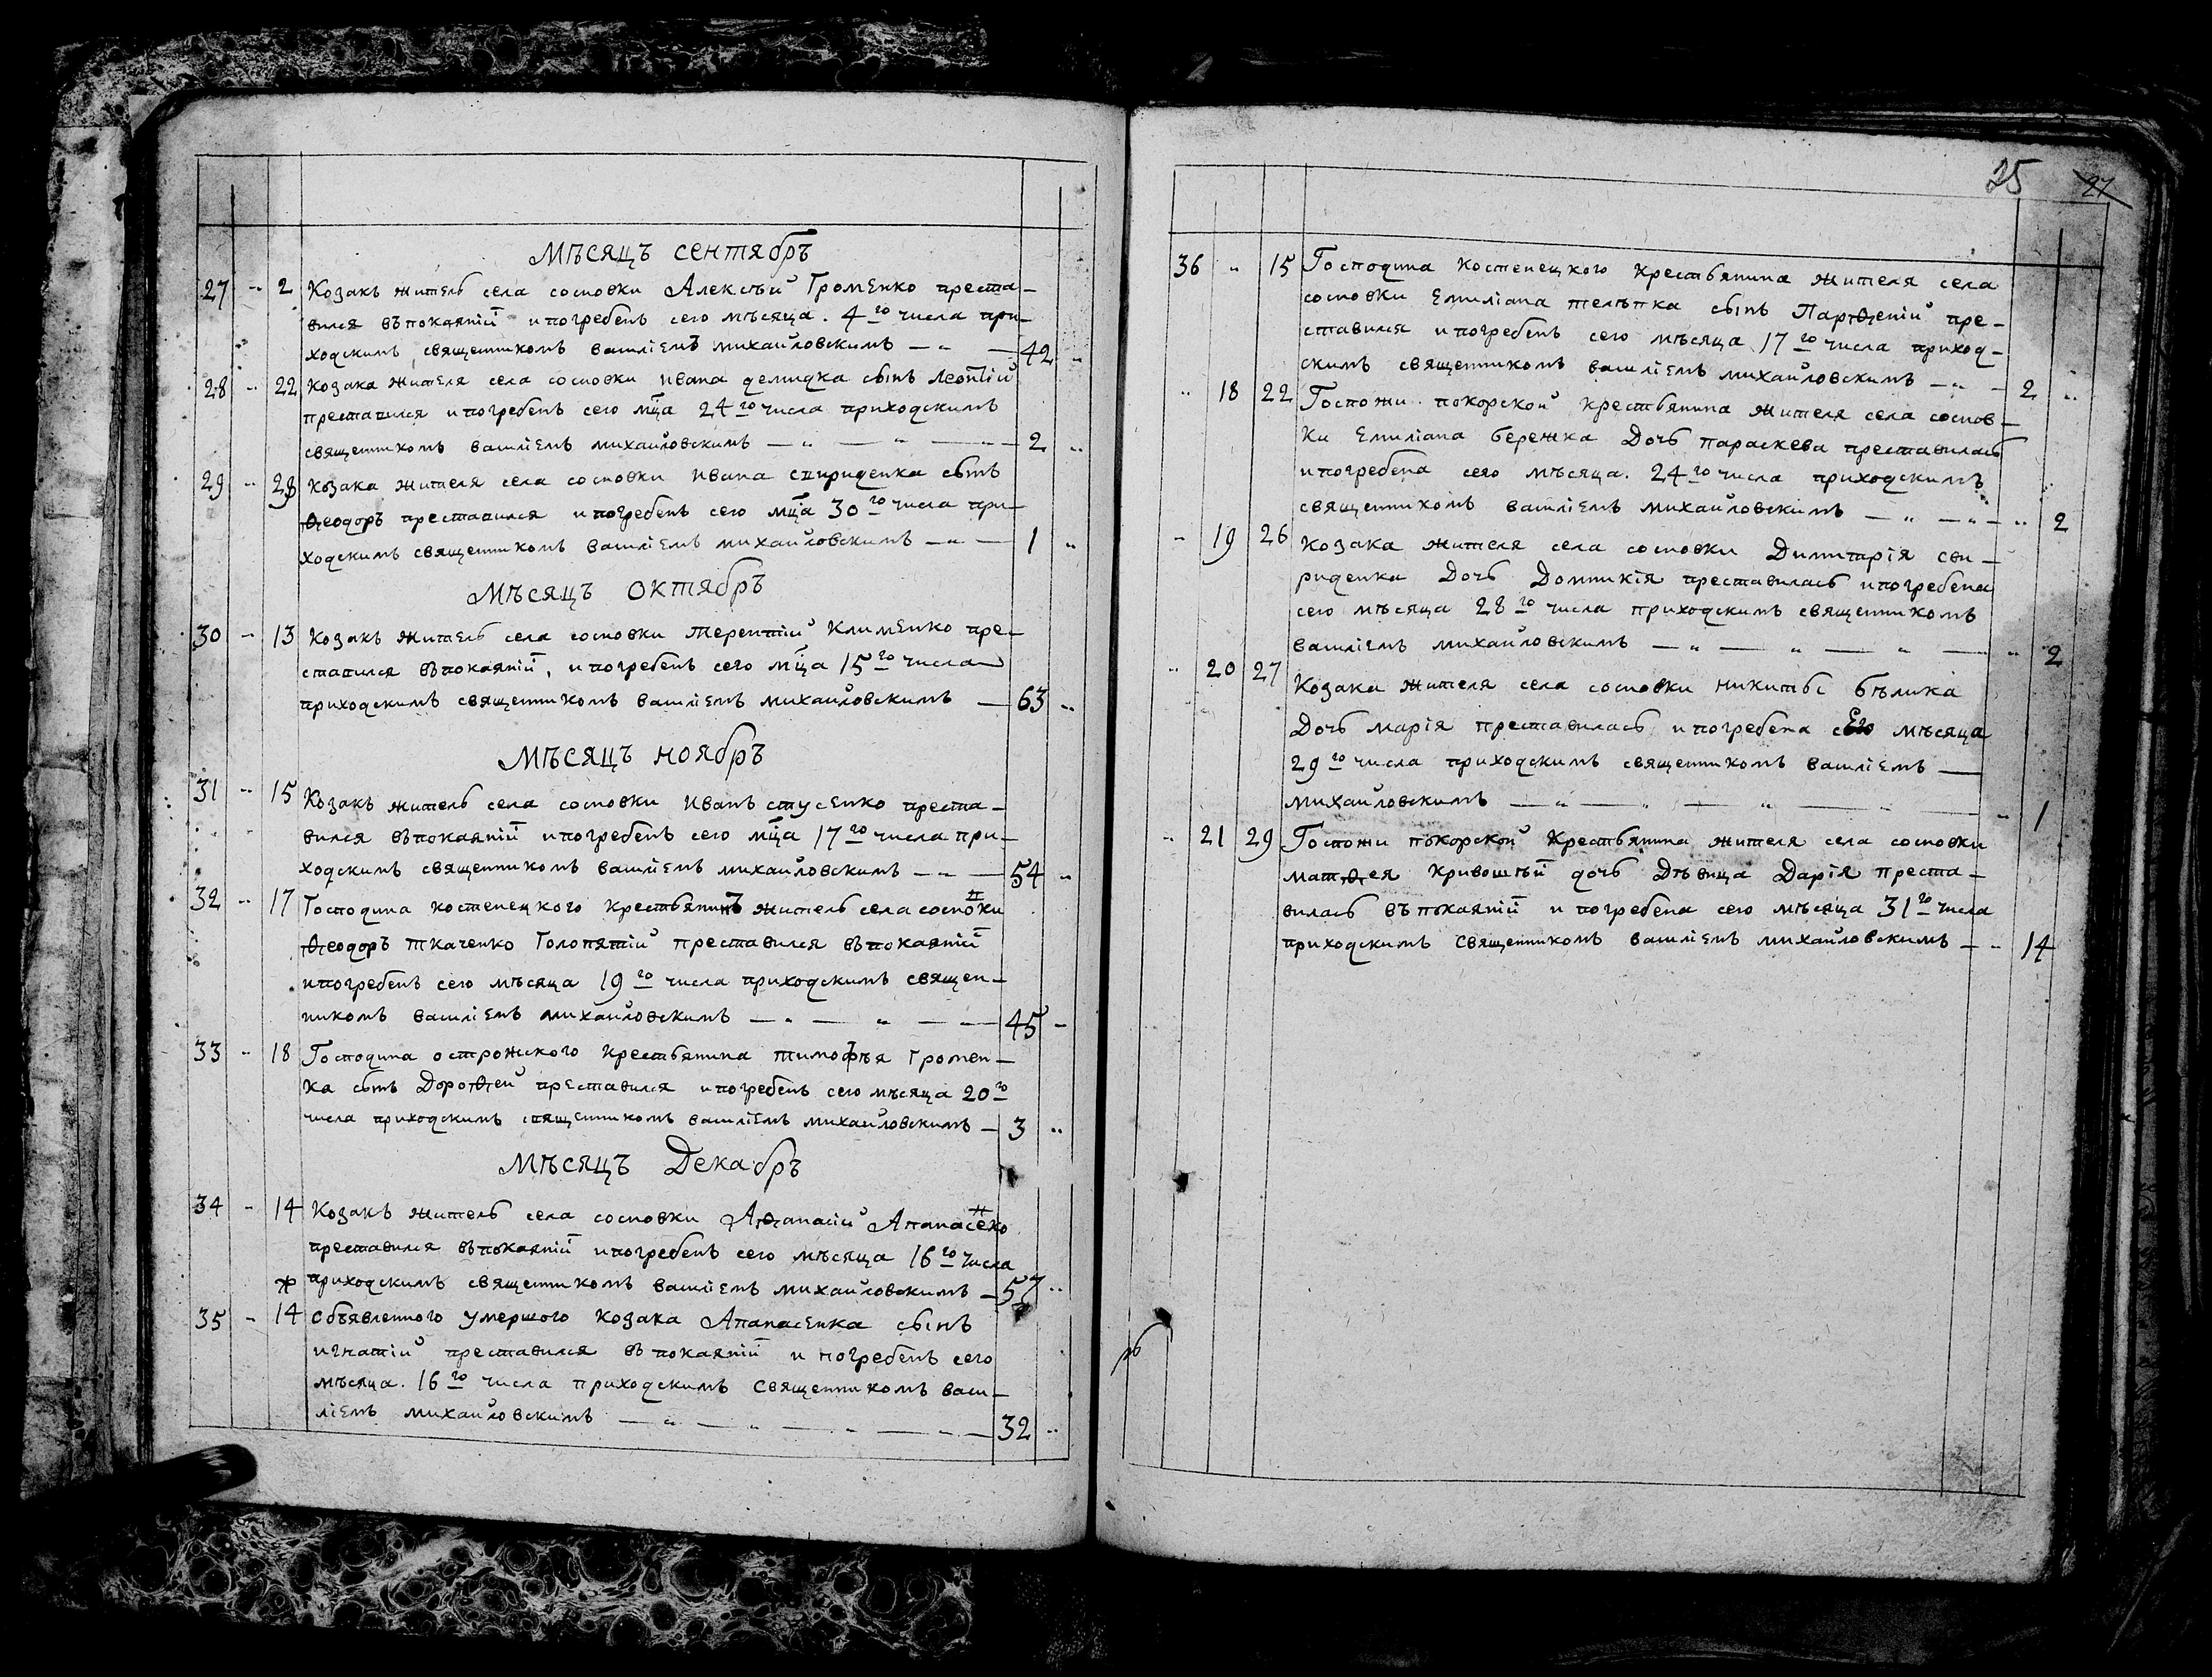 Мѣсяцъ сентябрь
27 - 2 Козакъ житель села сосновки Алексѣй Громенко преста-
вился въ покаянїи и погребенъ сего мѣсяца. 4го числа при-
ходскимъ священникомъ василїемъ михайловскимъ - 42
28 - 22 Козака жителя села сосновки Ивана демидка сынъ Леонтїй
преставился и погребенъ сего мца 24го числа приходскимъ
священникомъ василїемъ михайловскимъ - 2
29 - 28 Козака жителя села сосновки Ивана спириденка сынъ
Ѳеодоръ преставился и погребенъ сего мца 30го числа при-
ходскимъ священникомъ василїемъ михайловскимъ - 1
Мѣсяцъ октябрь
30 - 13 Козакъ житель села сосновки терентїй Клименко пре-
ставился въ покаянїи, и погребенъ сего мца 15го числа
приходскимъ священникомъ василїемъ михайловскимъ - 63
Мѣсяцъ ноябрь
31 - 15 Козакъ житель села сосновки Иванъ стусенко преста-
вился въ покаянїи и погребенъ сего мца 17го числа при-
ходскимъ священникомъ василїемъ михайловскимъ - 54
32 - 17 Господина костенецкого крестьянинъ житель села сосновки
Ѳеодоръ ткаченко Голопятїй преставился въ покаянїи
и погребенъ сего мѣсяца 19го числа приходскимъ священ-
никомъ василїемъ михайловскимъ - 45
33 - 18 Господина острожского крестьянина тимофѣя громен-
ка сынъ Дороѳей преставился и погребенъ сего мѣсяца 20го
числа приходскимъ священникомъ василїемъ михайловскимъ - 3
Мѣсяцъ Декабрь
34 - 14 Козакъ житель села сосновки Аѳанасїй Апанасенко
преставился въ покаянїи и погребенъ сего мѣсяца 16го числа
приходскимъ священникомъ василїемъ михайловскимъ - 57
35 - 14 объявленного умершого козака Апанасенка сынъ
игнатїй преставился въ покаянїи и погребенъ сего
мѣсяца. 16го числа приходскимъ священникомъ васи-
лїемъ михайловскимъ - 32
25 27
36 15 Господина костенецкого крестьянина жителя села
сосновки Емилїана телѣпка сынъ Парѳенїй пре-
ставился и погребенъ сего мѣсяца 17го числа приход-
скимъ священникомъ василїемъ михайловскимъ - 2
18 22 Госпожи покорской крестьянина жителя села соснов-
ки Емилїана бережка Дочь параскева преставилась
и погребена сего мѣсяца. 24го числа приходскимъ
священникомъ василїемъ михайловскимъ - 2
19 26 Козака жителя села сосновки Димитарїя сви-
риденка Дочь Домникїя преставилась и погребена
сего мѣсяца 28го числа приходскимъ священникомъ
василїемъ михайловскимъ - 2
20 27 Козака жителя села сосновки никиты бѣлика
Дочь марїя преставилась и погребена сего мѣсяца
29го числа приходскимъ священникомъ василїемъ -
михайловскимъ - 1
21 29 Госпожи покорской Крестьянина жителя села сосновки
матѳея кривошѣи дочь Дѣвица Дарїя преста-
вилась въ покаянїи и погребена сего мѣсяца 31го числа
приходскимъ священникомъ василїемъ михайловскимъ - 14